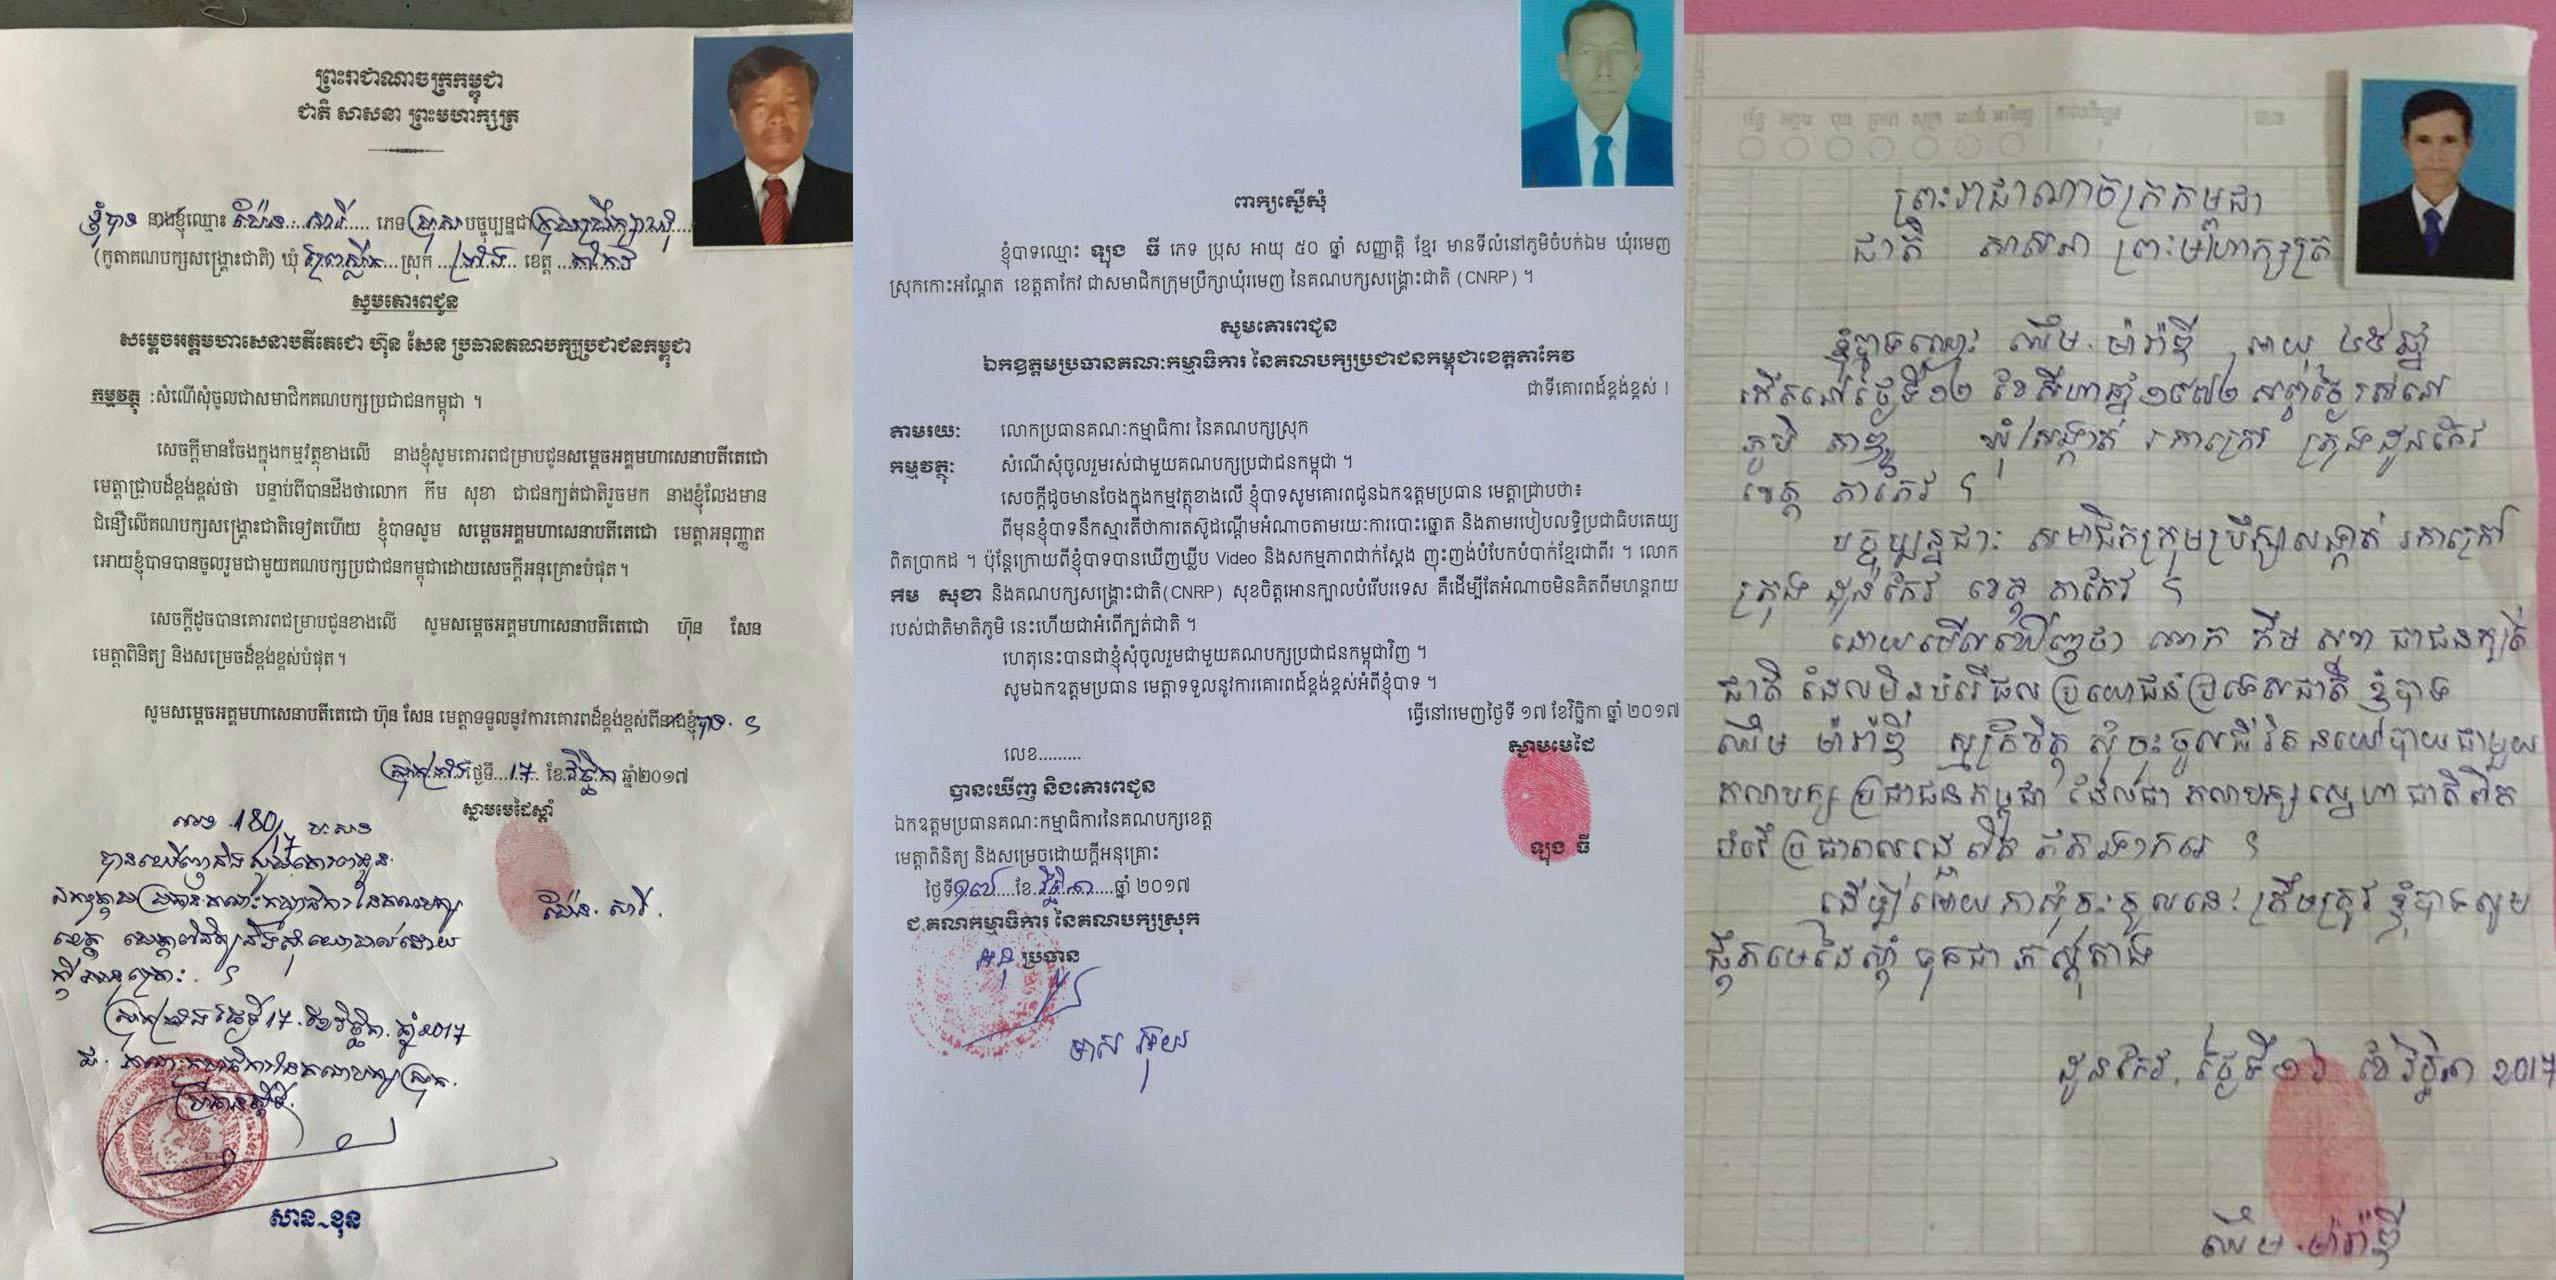 ព្រះរាជាណាចក្រកម្ពុជា
ជាតិ សាសនា ព្រះមហាក្សត្រ
ខ្ញុំបាទ នាងខ្ញុំឈ្មោះ ម៉ែន សារី ភេទ ប្រុស បច្ចុប្បន្នជា ក្រុមប្រឹក្សាឃុំ
(កូតាគណបក្សសង្គ្រោះជាតិ) ឃុំ ស្រុក ខេត្ត តាកែវ
សូមគោរពជូន
សម្តេចអគ្គមហាសេនាបតីតេជោ ហ៊ុន សែន ប្រធានគណបក្សប្រជាជនកម្ពុជា
កម្មវត្ថុ : សំណើសុំចូលជាសមាជិកគណបក្សប្រជាជនកម្ពុជា ។
សេចក្តីមានចែងក្នុងកម្មវត្ថុខាងលើ នាងខ្ញុំសូមគោរពជម្រាបជូនសម្តេចអគ្គមហាសេនាបតីតេជោ
មេត្តាជ្រាបដ៏ខ្ពង់ខ្ពស់ថា បន្ទាប់ពីបានដឹងថាលោក កឹម សុខា ជាជនក្បត់ជាតិរួចមក នាងខ្ញុំលែងមាន
ជំនឿលើគណបក្សសង្គ្រោះជាតិទៀតហើយ ខ្ញុំបាទសូម សម្តេចអគ្គមហាសេនាបតីតេជោ មេត្តាអនុញ្ញាត
អោយខ្ញុំបាទបានចូលរួមជាមួយគណបក្សប្រជាជនកម្ពុជាដោយសេចក្តីអនុគ្រោះបំផុត។
សេចក្តីដូចបានគោរពជម្រាបជូនខាងលើ សូមសម្តេចអគ្គមហាសេនាបតីតេជោ ហ៊ុន សែន
មេត្តាពិនិត្យ និងសម្រេចដ៏ខ្ពង់ខ្ពស់បំផុត។
សូមសម្តេចអគ្គមហាសេនាបតីតេជោ ហ៊ុន សែន មេត្តាទទួលនូវការគោរពដ៏ខ្ពង់ខ្ពស់ពីនាងខ្ញុំបាទ ។
ថ្ងៃទី 17 ខែ វិច្ឆិកា ឆ្នាំ២០១៧
ស្នាមមេដៃស្តាំ
លេខ 180/17
បានឃើញនិងសូមគោរពជូន
ឯកឧត្តមប្រធានគណៈកម្មាធិការនៃគណបក្ស
ខេត្ត មេត្តាពិនិត្យនិងសុំយោបល់ដោយ
ក្តីអនុគ្រោះ ។
ម៉ែន សារី
ថ្ងៃទី 17 ខែ វិច្ឆិកា ឆ្នាំ 2017
ជ. គណៈកម្មាធិការនៃគណបក្សស្រុក
សាន ខុន
ពាក្យស្នើសុំ
ខ្ញុំបាទឈ្មោះ ឡុង ធី ភេទ ប្រុស អាយុ ៥០ ឆ្នាំ សញ្ញាត្តិ ខ្មែរ មានទីលំនៅភូមិចំបក់ឯម ឃុំរមេញ
ស្រុកកោះអណ្តែត ខេត្តតាកែវ ជាសមាជិកក្រុមប្រឹក្សាឃុំរមេញ នៃគណបក្សសង្គ្រោះជាតិ (CNRP) ។
សូមគោរពជូន
ឯកឧត្តមប្រធានគណៈកម្មាធិការ នៃគណបក្សប្រជាជនកម្ពុជាខេត្តតាកែវ
ជាទីគោរពដ៍ខ្ពង់ខ្ពស់ !
តាមរយៈ លោកប្រធានគណៈកម្មាធិការ នៃគណបក្សស្រុក
កម្មវត្ថុៈ សំណើសុំចូលរួមរស់ជាមួយគណបក្សប្រជាជនកម្ពុជា ។
សេចក្តីដូចមានចែងក្នុងកម្មវត្ថុខាងលើ ខ្ញុំបាទសូមគោរពជូនឯកឧត្តមប្រធាន មេត្តាជ្រាបថា៖
ពីមុនខ្ញុំបាទនឹកស្មារតីថាការតស៊ូដណ្តើមអំណាចតាមរយៈការបោះឆ្នោត និងតាមរបៀបលទ្ធិប្រជាធិបតេយ្យ
ពិតប្រាកដ ។ ប៉ុន្តែក្រោយពីខ្ញុំបាទបានឃើញឃ្លីប Video និងសកម្មភាពជាក់ស្តែង ញុះញង់បំបែកបំបាក់ខ្មែរជាពីរ ។ លោក
កឹម សុខា និងគណបក្សសង្គ្រោះជាតិ(CNRP) សុខចិត្តអោនក្បាលបំរើបរទេស គឺដើម្បីតែអំណាចមិនគិតពីមហន្តរាយ
របស់ជាតិមាតិភូមិ នេះហើយជាអំពើក្បត់ជាតិ ។
ហេតុនេះបានជាខ្ញុំសុំចូលរួមជាមួយគណបក្សប្រជាជនកម្ពុជាវិញ ។
សូមឯកឧត្តមប្រធាន មេត្តាទទួលនូវការគោរពដ៍ខ្ពង់ខ្ពស់អំពីខ្ញុំបាទ ។
ធ្វើនៅរមេញថ្ងៃទី ១៧ ខែវិច្ឆិកា ឆ្នាំ ២០១៧
ស្នាមមេដៃ
ឡុង ធី
លេខ.........
បានឃើញ និងគោរពជូន
ឯកឧត្តមប្រធានគណៈកម្មាធិការនៃគណបក្សខេត្ត
មេត្តាពិនិត្យ និងសម្រេចដោយក្តីអនុគ្រោះ
ថ្ងៃទី ១៧ ខែ វិច្ឆិកា ឆ្នាំ ២០១៧
ជ.គណកម្មាធិការ នៃគណបក្សស្រុក
អនុ ប្រធាន
មាស អុយ
ព្រះរាជាណាចក្រកម្ពុជា
ជាតិ សាសនា ព្រះមហាក្សត្រ
ខ្ញុំបាទឈ្មោះ ឈឹម ម៉ារ៉ាឌី អាយុ ៤៥ ឆ្នាំ
កើតនៅថ្ងៃទី១២ ខែសីហាឆ្នាំ១៩៧២ សព្វថ្ងៃរស់នៅ
ភូមិ ឃុំ/សង្កាត់ រកាក្រៅ ក្រុងដូនកែវ
ខេត្ត តាកែវ ។
បច្ចុប្បន្នជាៈ សមាជិកក្រុមប្រឹក្សាសង្កាត់ រកាក្រៅ
ក្រុង ដូនកែវ ខេត្ត តាកែវ ។
ដោយមើលឃើញថា លោក កឹម សុខា ជាជនក្បត់
ជាតិ ដែលមិនបំរើផលប្រយោជន៍ប្រទេសជាតិ ខ្ញុំបាទ
ឈឹម ម៉ារ៉ាឌី ស្ម័គ្រចិត្ត សុំចុះចូលជីវិតនយោបាយជាមួយ
គណបក្សប្រជាជនកម្ពុជា ដែលជាគណបក្សស្នេហាជាតិពិត
ដើម្បីអោយការសុំចុះចូលនេះត្រឹមត្រូវ ខ្ញុំបាទសូម
ផ្តិតមេដៃស្តាំ ទុកជាភស្តុតាង
ដូនកែវ, ថ្ងៃទី១៦ ខែវិច្ឆិកា 2017
ឈឹម ម៉ារ៉ាឌី